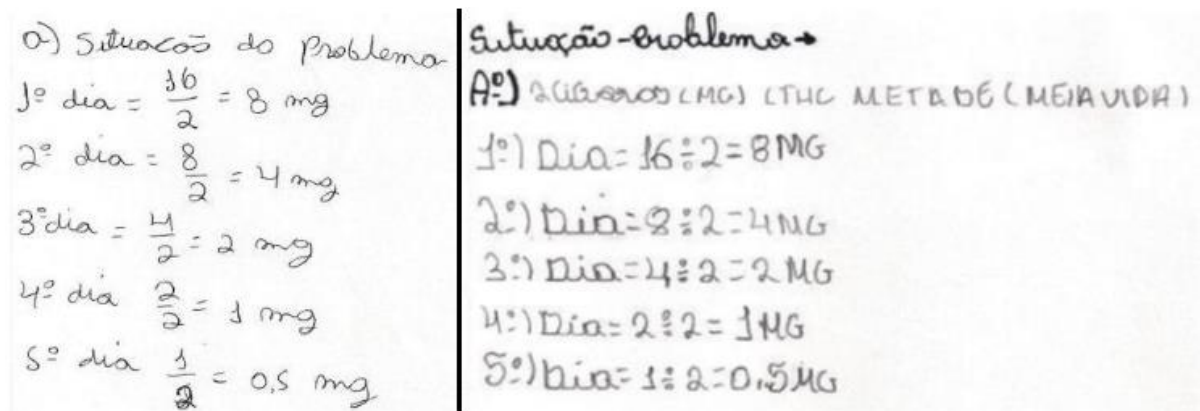 a) Situacoõ do Problema
1º dia = 16/2 = 8 mg
2º dia = 8/2 = 4 mg
3º dia = 4/2 = 2 mg
4º dia 2/2 = 1 mg
5º dia 1/2 = 0,5 mg
Situação-Problema→
Aº) (MG) (THC METADE (MEIA VIDA)
1º) Dia = 16÷2 = 8MG
2º) Dia = 8÷2 = 4MG
3º) Dia = 4÷2 = 2MG
4º) Dia = 2÷2 = 1MG
5º) Dia = 1÷2 = 0,5MG